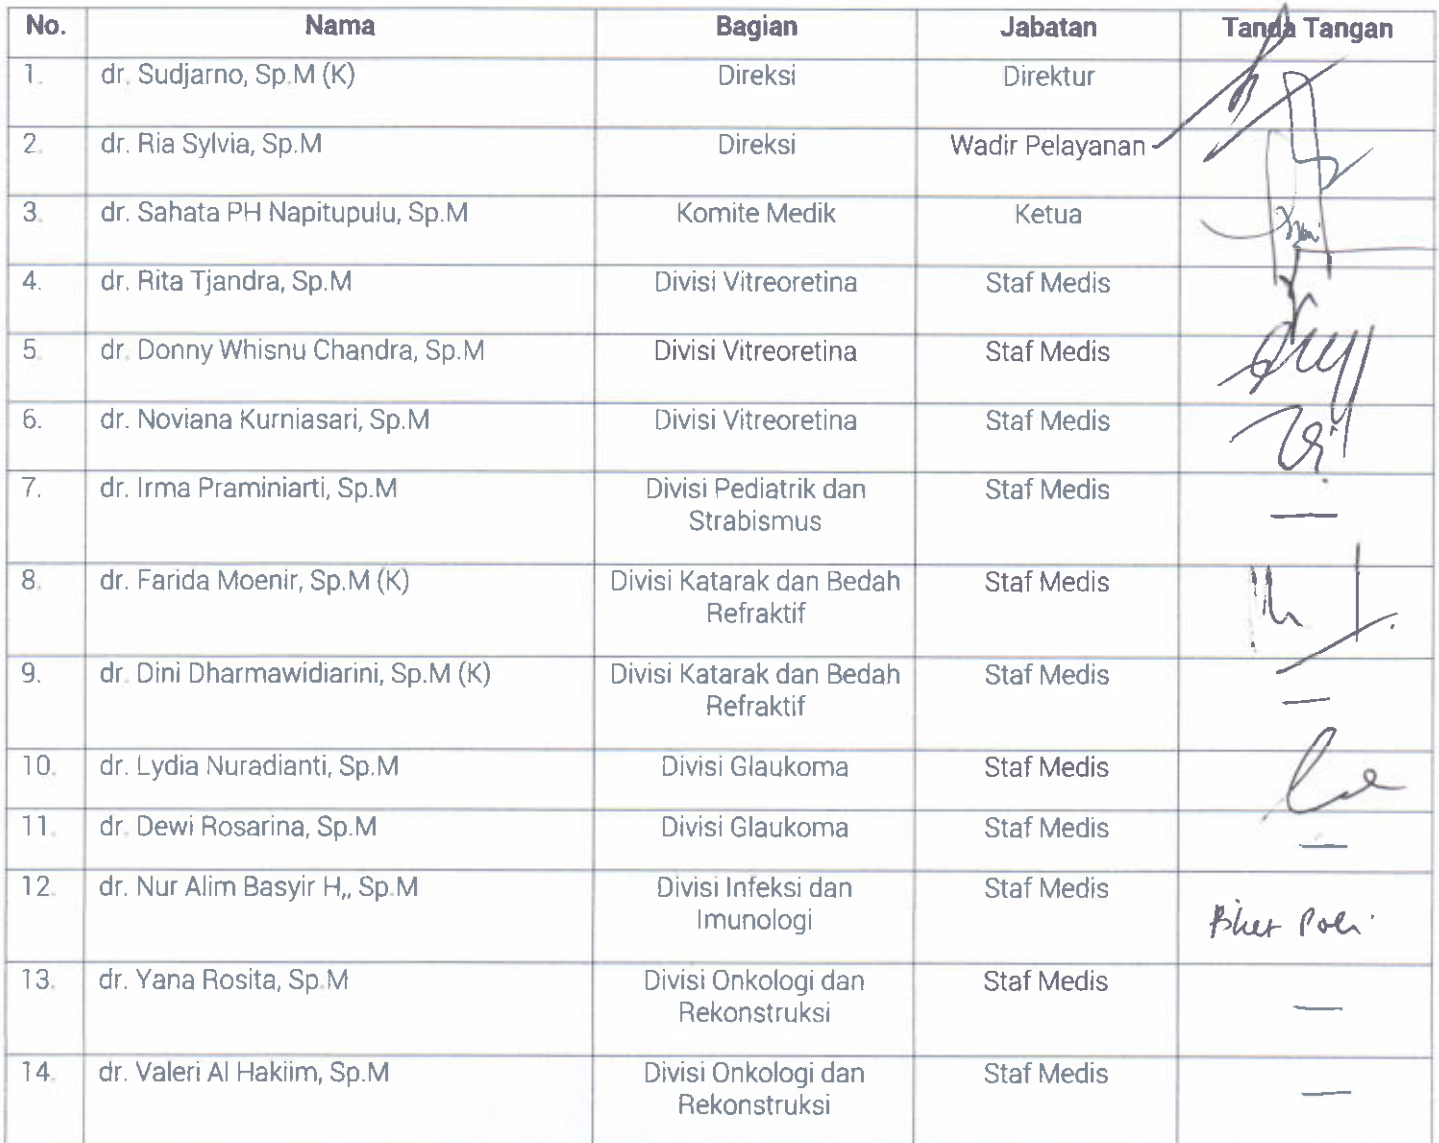 No. Nama Bagian Jabatan Tanda Tangan
1. dr. Sudjarno, Sp.M (K) Direksi Direktur
2. dr. Ria Sylvia, Sp.M Direksi Wadir Pelayanan
3. dr. Sahata PH Napitupulu, Sp.M Komite Medik Ketua
4. dr. Rita Tjandra, Sp.M Divisi Vitreoretina Staf Medis
5. dr. Donny Whisnu Chandra, Sp.M Divisi Vitreoretina Staf Medis
6. dr. Noviana Kurniasari, Sp.M Divisi Vitreoretina Staf Medis
7. dr. Irma Praminiarti, Sp.M Divisi Pediatrik dan Staf Medis
Strabismus —
8. dr. Farida Moenir, Sp.M (K) Divisi Katarak dan Bedah Staf Medis
Refraktif
9. dr. Dini Dharmawidiarini, Sp.M (K) Divisi Katarak dan Bedah Staf Medis
Refraktif —
10. dr. Lydia Nuradianti, Sp.M Divisi Glaukoma Staf Medis
11. dr. Dewi Rosarina, Sp.M Divisi Glaukoma Staf Medis —
12. dr. Nur Alim Basyir H,, Sp.M Divisi Infeksi dan Staf Medis
Imunologi
13. dr. Yana Rosita, Sp.M Divisi Onkologi dan Staf Medis
Rekonstruksi —
14. dr. Valeri Al Hakiim, Sp.M Divisi Onkologi dan Staf Medis
Rekonstruksi —